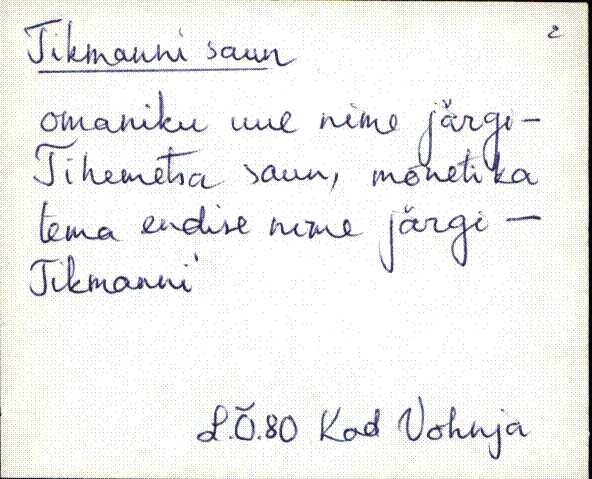 2
Tikmanni saun
omaniku uue nime järgi -
Tihemetsa saun, mõnetika
tema endise nime järgi -
Tikmanni
L.Õ.80 Kad Vohnja